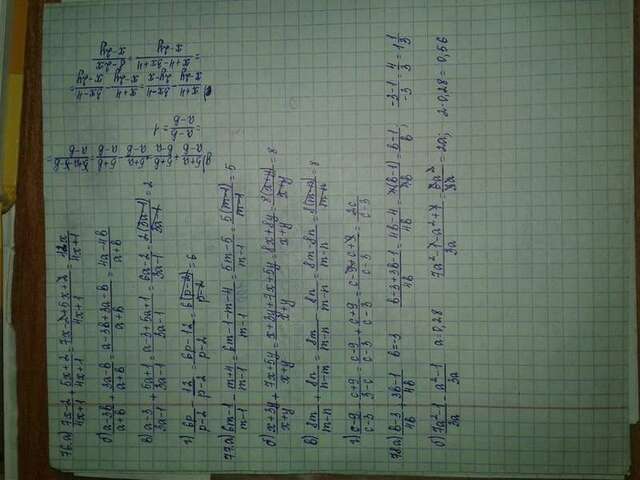 76.а) (7x-2)/(4x+1) + (5x+2)/(4x+1) = (7x-2+5x+2)/(4x+1) = 12x/(4x+1)
б) (a-3b)/(a+b) + (3a-b)/(a+b) = (a-3b+3a-b)/(a+b) = (4a-4b)/(a+b)
в) (a-3)/(3a-1) + (5a+1)/(3a-1) = (a-3+5a+1)/(3a-1) = (6a-2)/(3a-1) = 2(3a-1)/(3a-1) = 2
г) 6p/(p-2) - 12/(p-2) = (6p-12)/(p-2) = 6(p-2)/(p-2) = 6
77.а) (6m-1)/(m-1) - (m+4)/(m-1) = (6m-1-m-4)/(m-1) = (5m-5)/(m-1) = 5(m-1)/(m-1) = 5
б) (x+3y)/(x+y) + (7x+5y)/(x+y) = (x+3y+7x+5y)/(x+y) = (8x+8y)/(x+y) = 8(x+y)/(x+y) = 8
в) 8m/(m-n) + 8n/(n-m) = 8m/(m-n) - 8n/(m-n) = (8m-8n)/(m-n) = 8(m-n)/(m-n) = 8
г) (c-9)/(c-3) - (c+9)/(3-c) = (c-9)/(c-3) + (c+9)/(c-3) = (c-9+c+9)/(c-3) = 2c/(c-3)
78.а) (b-3)/4b + (3b-1)/4b b=-3 (b-3+3b-1)/4b = (4b-4)/4b = 4(b-1)/4b = (b-1)/b; (-3-1)/-3 = 4/3 = 1 1/3
б) (7a²-1)/3a - (a²-1)/3a a=0,28 (7a²-1-a²+1)/3a = 6a²/3a = 2a; 2·0,28 = 0,56
= (a-b)/(a-b) = 1